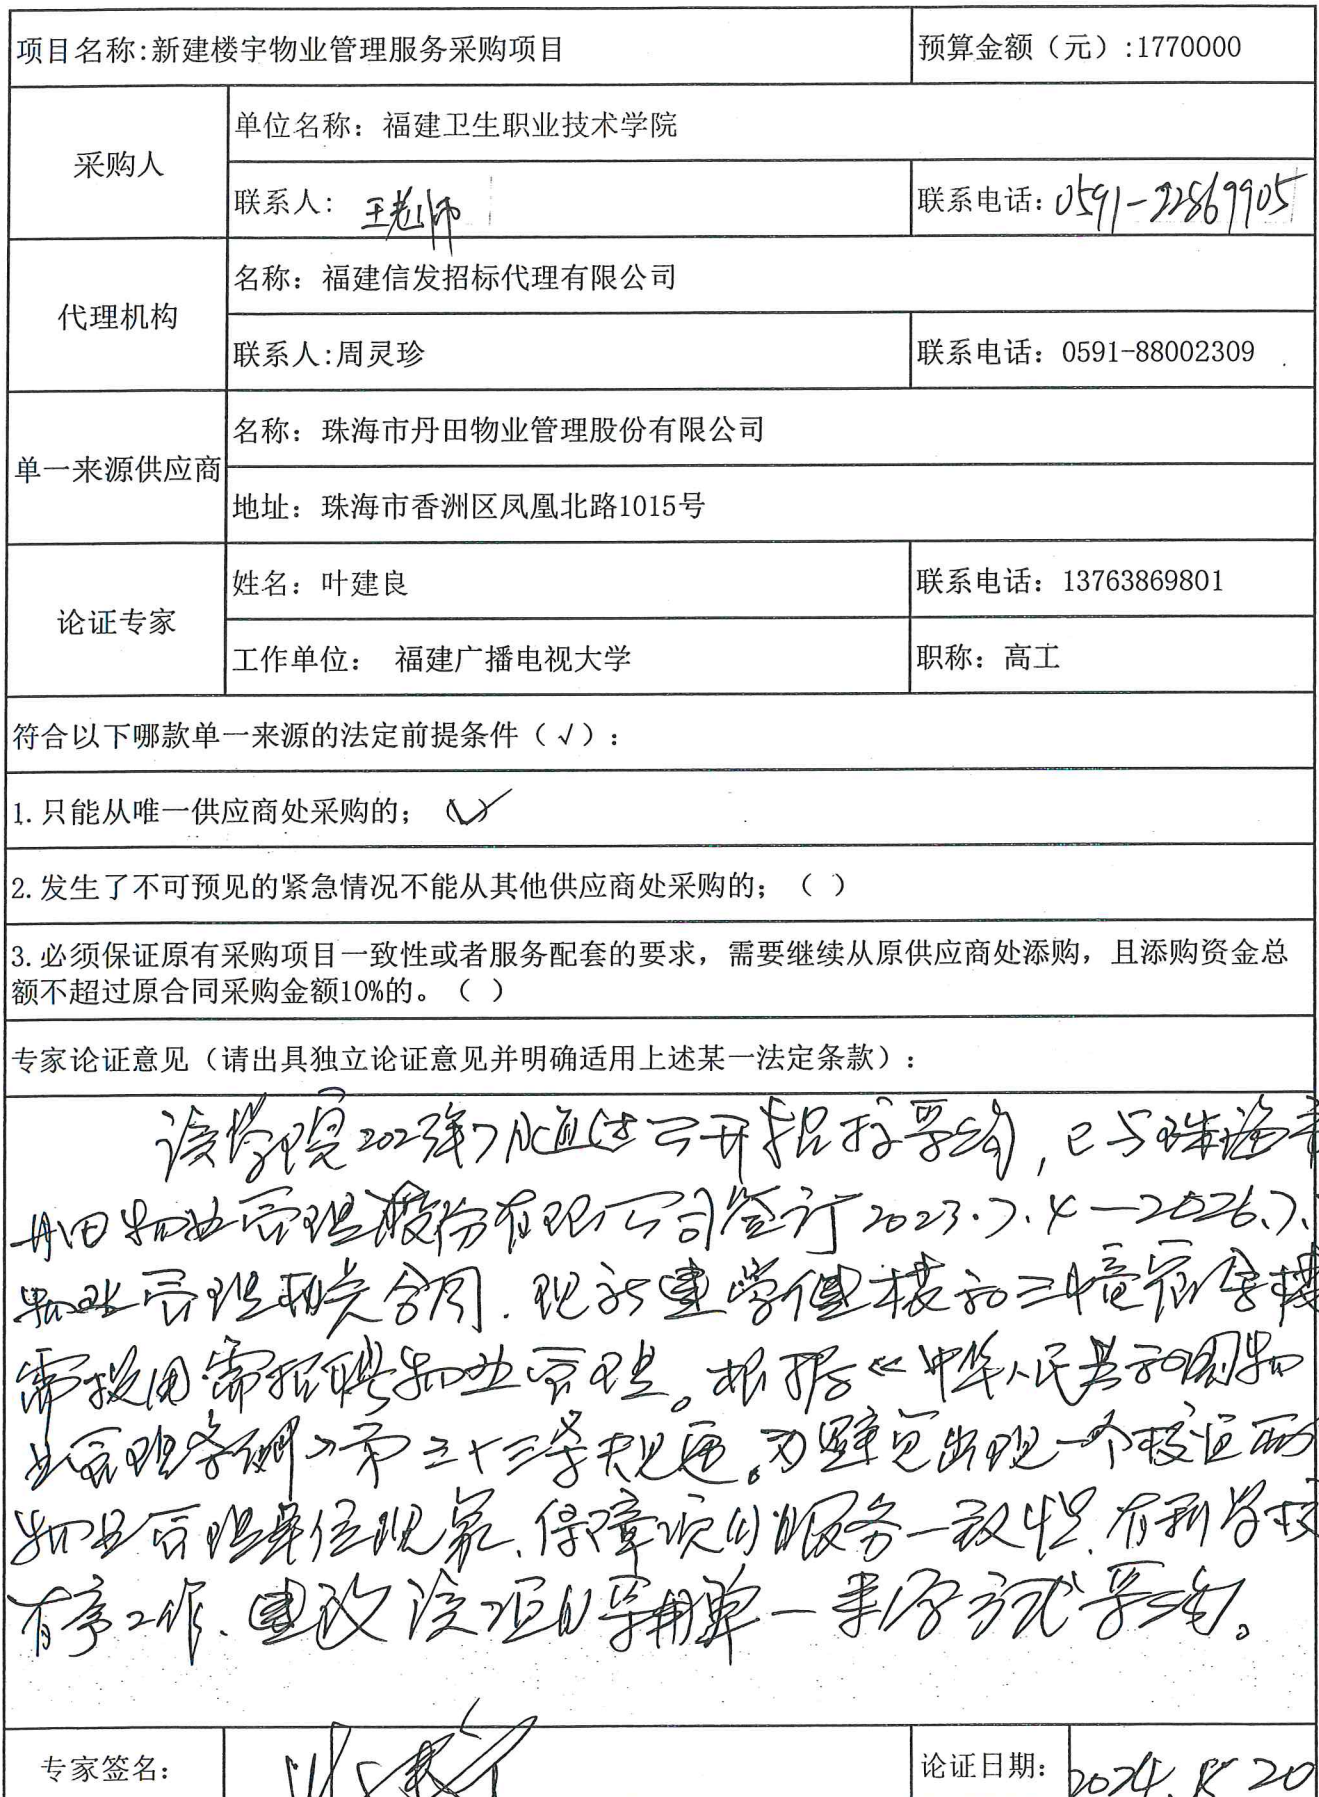 项目名称:新建楼宇物业管理服务采购项目
预算金额（元）:1770000
采购人
单位名称：福建卫生职业技术学院
联系人：王老师
联系电话：0591-22869905
代理机构
名称：福建信发招标代理有限公司
联系人:周灵珍
联系电话：0591-88002309
单一来源供应商
名称：珠海市丹田物业管理股份有限公司
地址：珠海市香洲区凤凰北路1015号
论证专家
姓名：叶建良
联系电话：13763869801
工作单位： 福建广播电视大学
职称：高工
符合以下哪款单一来源的法定前提条件（√）：
1.只能从唯一供应商处采购的；（√）
2.发生了不可预见的紧急情况不能从其他供应商处采购的；（ ）
3.必须保证原有采购项目一致性或者服务配套的要求，需要继续从原供应商处添购，且添购资金总
额不超过原合同采购金额10%的。（ ）
专家论证意见（请出具独立论证意见并明确适用上述某一法定条款）：
该学院2023年7月通过公开招标采购，已与珠海市
丹田物业管理股份有限公司签订2023.7.4—2026.7.
物业管理相关合同.现新建学生楼和三幢宿舍楼
需投用需招聘物业管理。根据《中华人民共和国物
业管理条例》第三十三条规定。为避免出现一个校区两
物业管理单位现象、保障项目服务一致性、有利学校
有序工作、建议该项目采用单一来源方式采购。
专家签名：
论证日期：2024.5.20